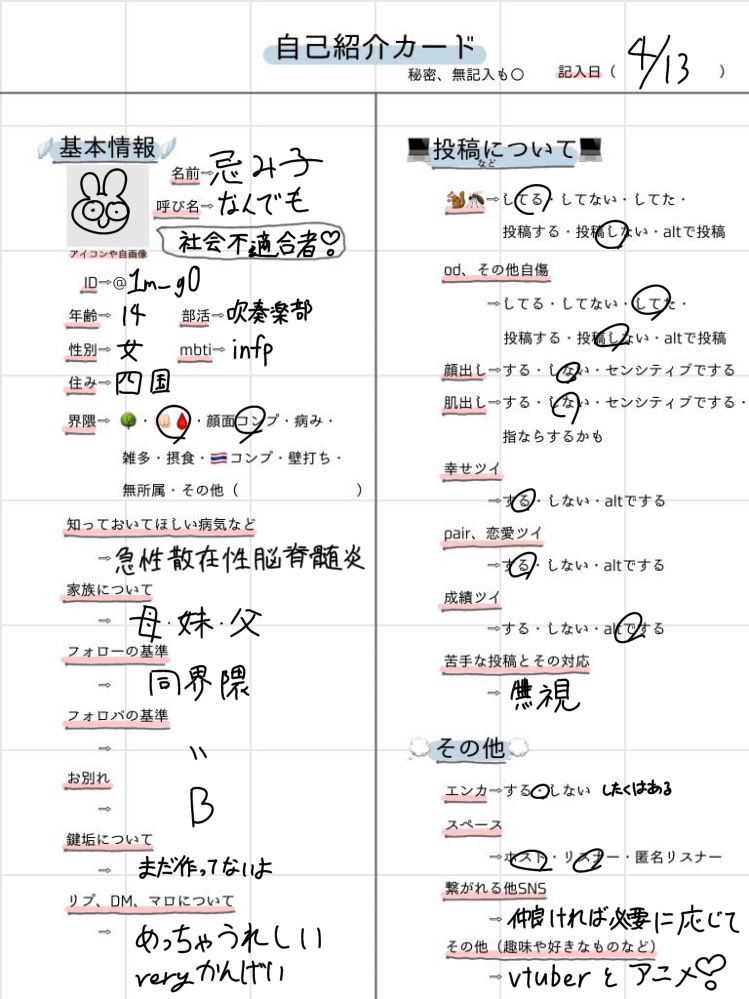 自己紹介カード
秘密、無記入も〇 記入日（ 4/13 ）
🪽基本情報🪽
名前→忌み子
呼び名→なんでも
社会不適合者♡
アイコンや自画像
ID→@1m_g0
年齢→14 部活→吹奏楽部
性別→女 mbti→infp
住み→四国
界隈→🌳・🩸・顔面コンプ・病み・
雑多・摂食・🇹🇭コンプ・壁打ち・
無所属・その他（ ）
知っておいてほしい病気など
→急性散在性脳脊髄炎
家族について
→母・妹・父
フォローの基準
→同界隈
フォロバの基準
→〃
お別れ
→B
鍵垢について
→まだ作ってないよ
リプ、DM、マロについて
→めっちゃうれしい
veryかんげい
💻投稿について💻
など
🐿️🦟→してる・してない・してた・
投稿する・投稿しない・altで投稿
od、その他自傷
→してる・してない・してた・
投稿する・投稿しない・altで投稿
顔出し→する・しない・センシティブでする
肌出し→する・しない・センシティブでする・
指ならするかも
幸せツイ
→する・しない・altでする
pair、恋愛ツイ
→する・しない・altでする
成績ツイ
→する・しない・altでする
苦手な投稿とその対応
→無視
💭その他💭
エンカ→する・しない したくはある
スペース
→ホスト・リスナー・匿名リスナー
繋がれる他SNS
→仲良ければ必要に応じて
その他（趣味や好きなものなど）
→vtuberとアニメ♡